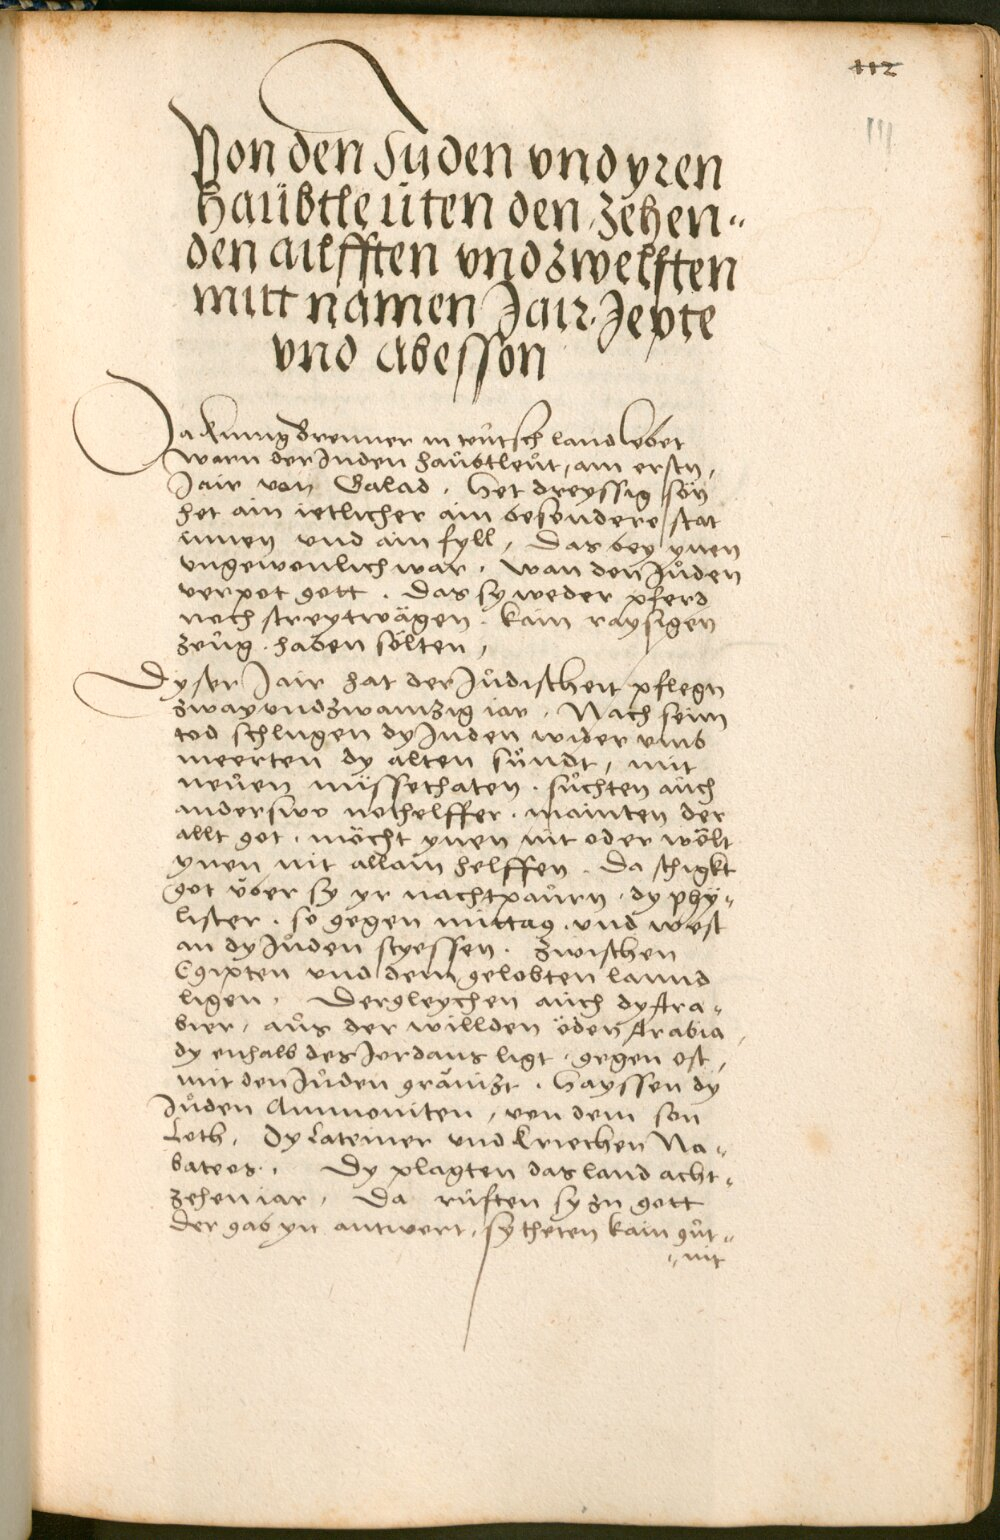 112
111
Von den Juden vnd yren
haübtleüten den zehen„
den ailfften vnd zwelften
mitt namen Jair. Jepte
vnd Abesson
Da kunig Brenner in teůtsch land lebet
warn der Juden haůbtleůt, am ersten,
Jair von Galad. Het dreyssig sön
het ain ietlicher ain besondere stat
innen vnd ain fyll, Das bey ynen
vngewonlich war. Wan den Jůden
verpot gott. Das sy weder pferd
noch streytwägen. kain raysigen
zeůg. haben sölten,
Dyser Jair hat der Jůdischeit pflegn
zway vnd zwainzig iar. Nach seim
tod schlugen dy Juden wider vmb
meerten dy alten sůndt, mit
neůen müssethaten. sůchten aůch
anderswo nothelffer. mainten der
allt got. möcht ynen nit oder wölt
ynen nit allain helffen. Da schigkt
got über sy yr nachtpaůrn. dy phy„
lister. so gegen mittag. vnd west
an dy Jůden styessen. zwischen
Egipten vnd dem gelobten lannd
ligen. Dergleychen aůch dy Ara„
bier, aůs der willden öden Arabia,
dy enhalb des Jordans ligt. gegen ost,
mit den Jůden gränizt. Hayssen dy
Jůden Ammoniten, von dem son
Loth. Dy Lateiner vnd kriechen Na„
bateos. Dy plagten das land acht„
zehen iar. Da růften sy zu gott
der gab yn antwort, sy theten kain gůt„
„nit